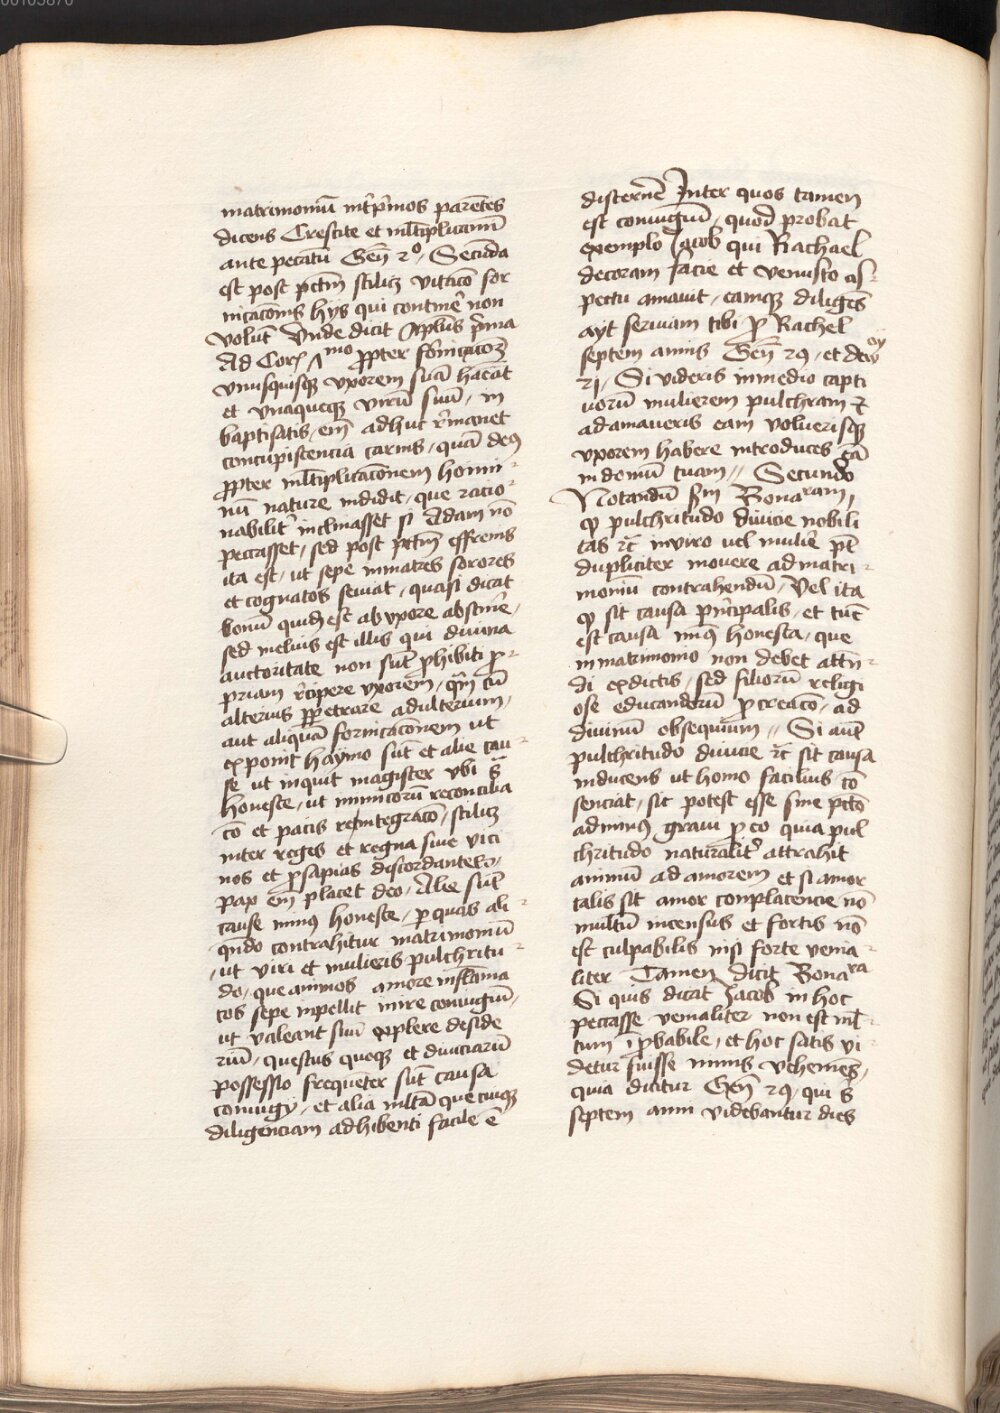 matrimoniū int̄ p̄mos parētes
dicens Crescite et ml̄tiplicamī
ante peccatū Gen̄ 2º, Secūda
est post pctm̄ scilicꝫ vitacō for
nicacōnis hys qui contine᷑ non
volūt Vnde dicit Apl̄us p̄ma
Ad Cor̄ 7mo ꝓpter fornicacōꝫ
vnusquisqꝫ vxorem suā habeat
et vnaqueqꝫ virū suū, in
baptisatis, em̄ adhuc r̄manet
concupiscencia carnis, quā deꝰ
ꝓpter ml̄tiplicacōnem homi
nū nature indidit, que racio
nabilit᷑ inclinasset si Adam nō
peccasset, sed post pctm̄ effrenis
ita est, ut sepe in matres sorores
et cognatos seuiat, quasi dicat
bonū quidē est ab vxore abstine᷑,
sed melius est illis qui diuina
auctoritate non sūt ꝓhibiti ꝓ
priam r̄cipere vxorem, qm̄ cū
alterius ꝑpetrare adulterium,
aut aliquā fornicacōnem ut
exponit haymo sūt et alie cau
se ut inquit magister vbi s̄
honeste, ut inimicorū reconcilia
cō et pacis reintegracō, scilicꝫ
inter reges et regna siue vici
nos et ꝓsapias discordantes,
pax em̄ placet deo, Alie sūt
cause minꝰ honeste, ꝓ quas ali
qn̄do contrahitur matrimoniū
, ut viri et mulieris pulchritu
do, que animos amore inflāma
tos sepe inpellit inire coniugiū,
ut valeant suū explere deside
riū, questus quoqꝫ et diuiciarū
possessio frequēter sūt causa
coniugy, et alia ml̄ta que cuiqꝫ
diligenciam adhibenti facile ē
discerne᷑ Inter quos tamen
est coniugiū, quod probat
exemplo Jacob qui Rachael
decoram facie et venusto as
pectu amauit, eamqꝫ diligēs
ayt seruiam tibi ꝓ Rachel
septem annis Gen̄ 29, et deuoy
21, Si videris in medio capti
uorū mulierem pulchram ⁊
adamaueris eam voluerisqꝫ
vxorem habere introduces eā
in domū tuam,, Secundo
Notandū sm̄ Bonaram,
ꝙ pulchritudo diuicie nobili
tas ⁊c̄ in viro uel mulie᷑ pt̄
dupliciter mouere ad matri
moniū contrahendū, Vel ita
ꝙ sit causa p̄ncipalis, et tūc
est causa minꝰ honesta, que
in matrimonio non debet attē
di ex dictis, sed filiorū religi
ose educandorū ꝓcreacō, ad
diuinū obsequium,, Si autē
pulchritudo diuicie ⁊c̄ sit causa
inducens ut homo facilius cō
senciat, sic potest esse sine pctō
ad minꝰ graui ꝓ eo quia pul
chritudo naturalit᷑ attrahit
animū ad amorem et si amor
talis sit amor conplacencie nō
multū incensus et fortis nō
est culpabilis nisi forte venia
liter Tamen dicit Bonara
Si quis dicat Jacob in hoc
peccasse venialiter non est ml̄
tum īꝓbabile, et hoc satis vi
detur fuisse nimis vehemēs,
quia dicitur Gen̄ 29, qui s̄
septem anni videbantur dies